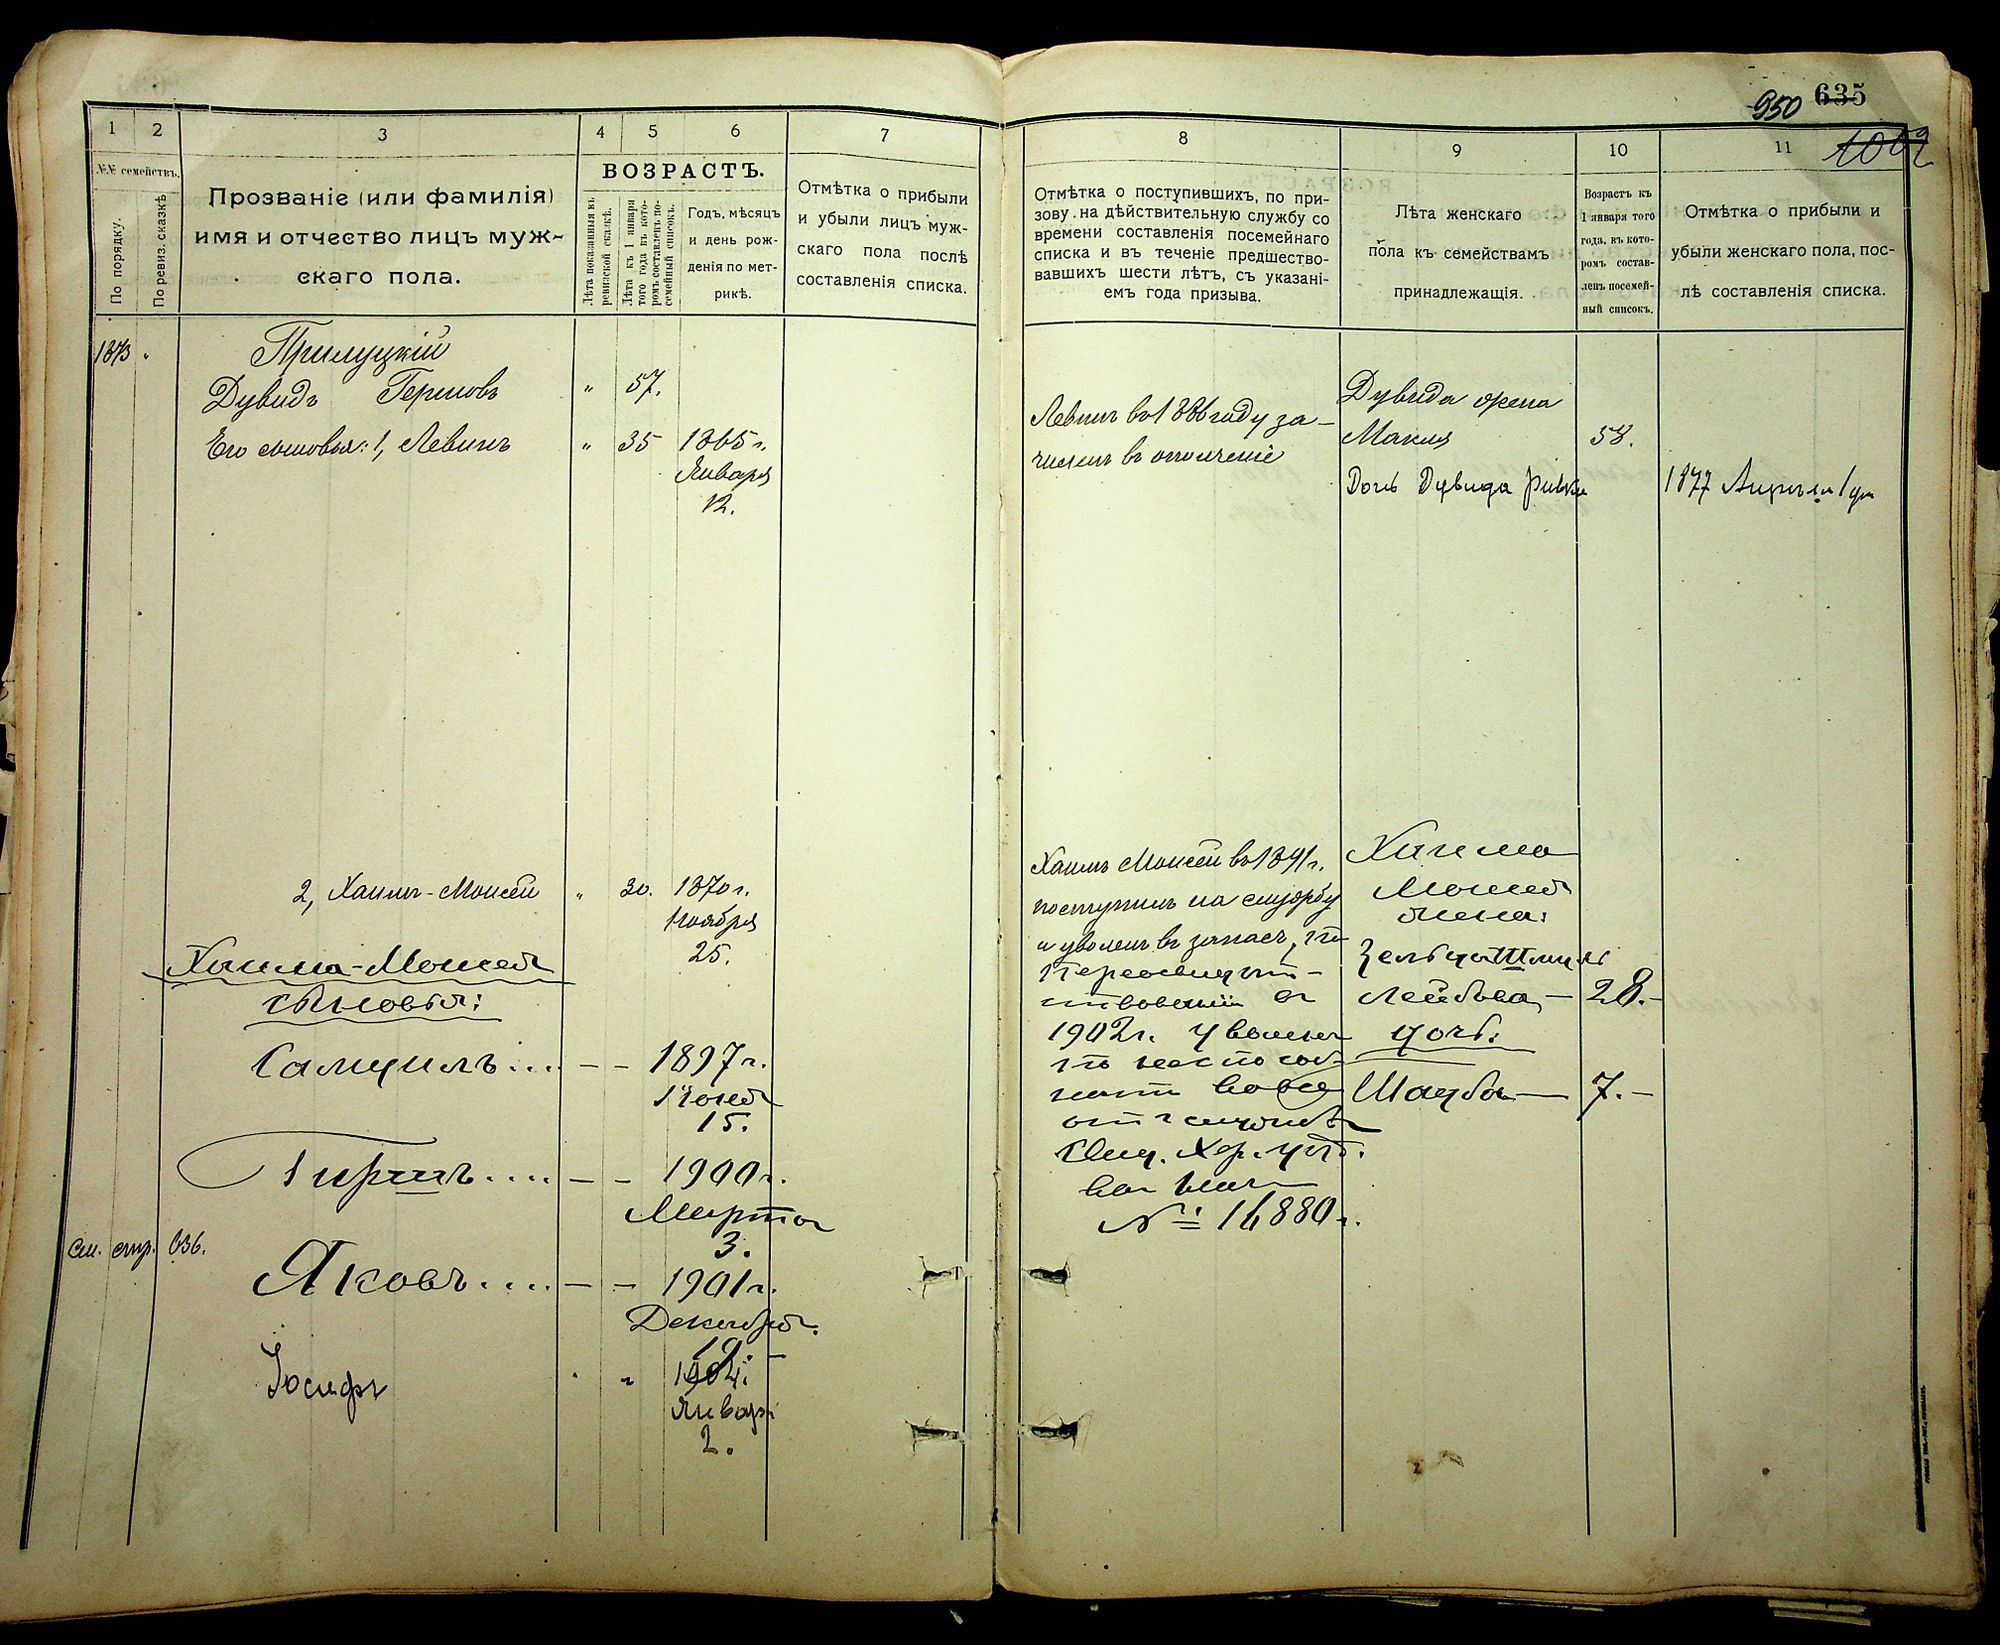 950 635
1002
1 2 3 4 5 6 7
№№ семействъ.
По порядку.
По ревиз. сказкѣ
Прозваніе (или фамилія)
имя и отчество лицъ муж-
скаго пола.
ВОЗРАСТЪ.
Лѣта показанныя въ
ревизской сказкѣ.
Лѣта къ 1 января
того года къ кото-
ромъ составленъ по-
семейный списокъ.
Годъ, мѣсяцъ
и день рож-
денія по мет-
рикѣ.
Отмѣтка о прибыли
и убыли лицъ муж-
скаго пола послѣ
составленія списка.
1873 "
Прилуцкій
Дувидъ Гершовъ " 57.
Его сыновья: 1, Левинъ " 35 1865 г.
Января
12.
2, Хаимъ-Моисей " 30. 1870 г.
Ноября
25.
Хаима-Моисея
сыновья:
Самуилъ.... — — 1897 г.
Іюня
15.
Гиршъ.... — — 1900 г.
Марта
3.
см. стр. 636.
Яковъ.... — — 1901 г.
Декабря.
19.
Іосифъ " " 1904 г.
Январ
2.
8 9 10 11
Отмѣтка о поступившихъ, по при-
зову на дѣйствительную службу со
времени составленія посемейнаго
списка и въ теченіе предшество-
вавшихъ шести лѣтъ, съ указані-
емъ года призыва.
Лѣта женскаго
пола къ семействамъ
принадлежащія.
Возрастъ къ
1 января того
года, въ кото-
ромъ состав-
ленъ посемей-
ный списокъ.
Отмѣтка о прибыли и
убыли женскаго пола, пос-
лѣ составленія списка.
Левинъ въ 1886 году за-
численъ въ ополченіе
Дувида жена
Макля 58.
Дочь Дувида Ривка 1877 Апрѣля 1 дня
Хаимъ Моисей въ 1891 г.
поступилъ на службу
и уволенъ въ запасъ, по
переосвидѣтель-
ствованіи въ
1902 г. уволенъ
по неспособ-
ности вовсе
отъ службы
Свид. Хер. уѣз.
воин. нач.
№ 16880.
Хаима
Моисея
жена:
Зельда Шлиома
Лейбова — 28.—
дочь:
Шейва — 7.—